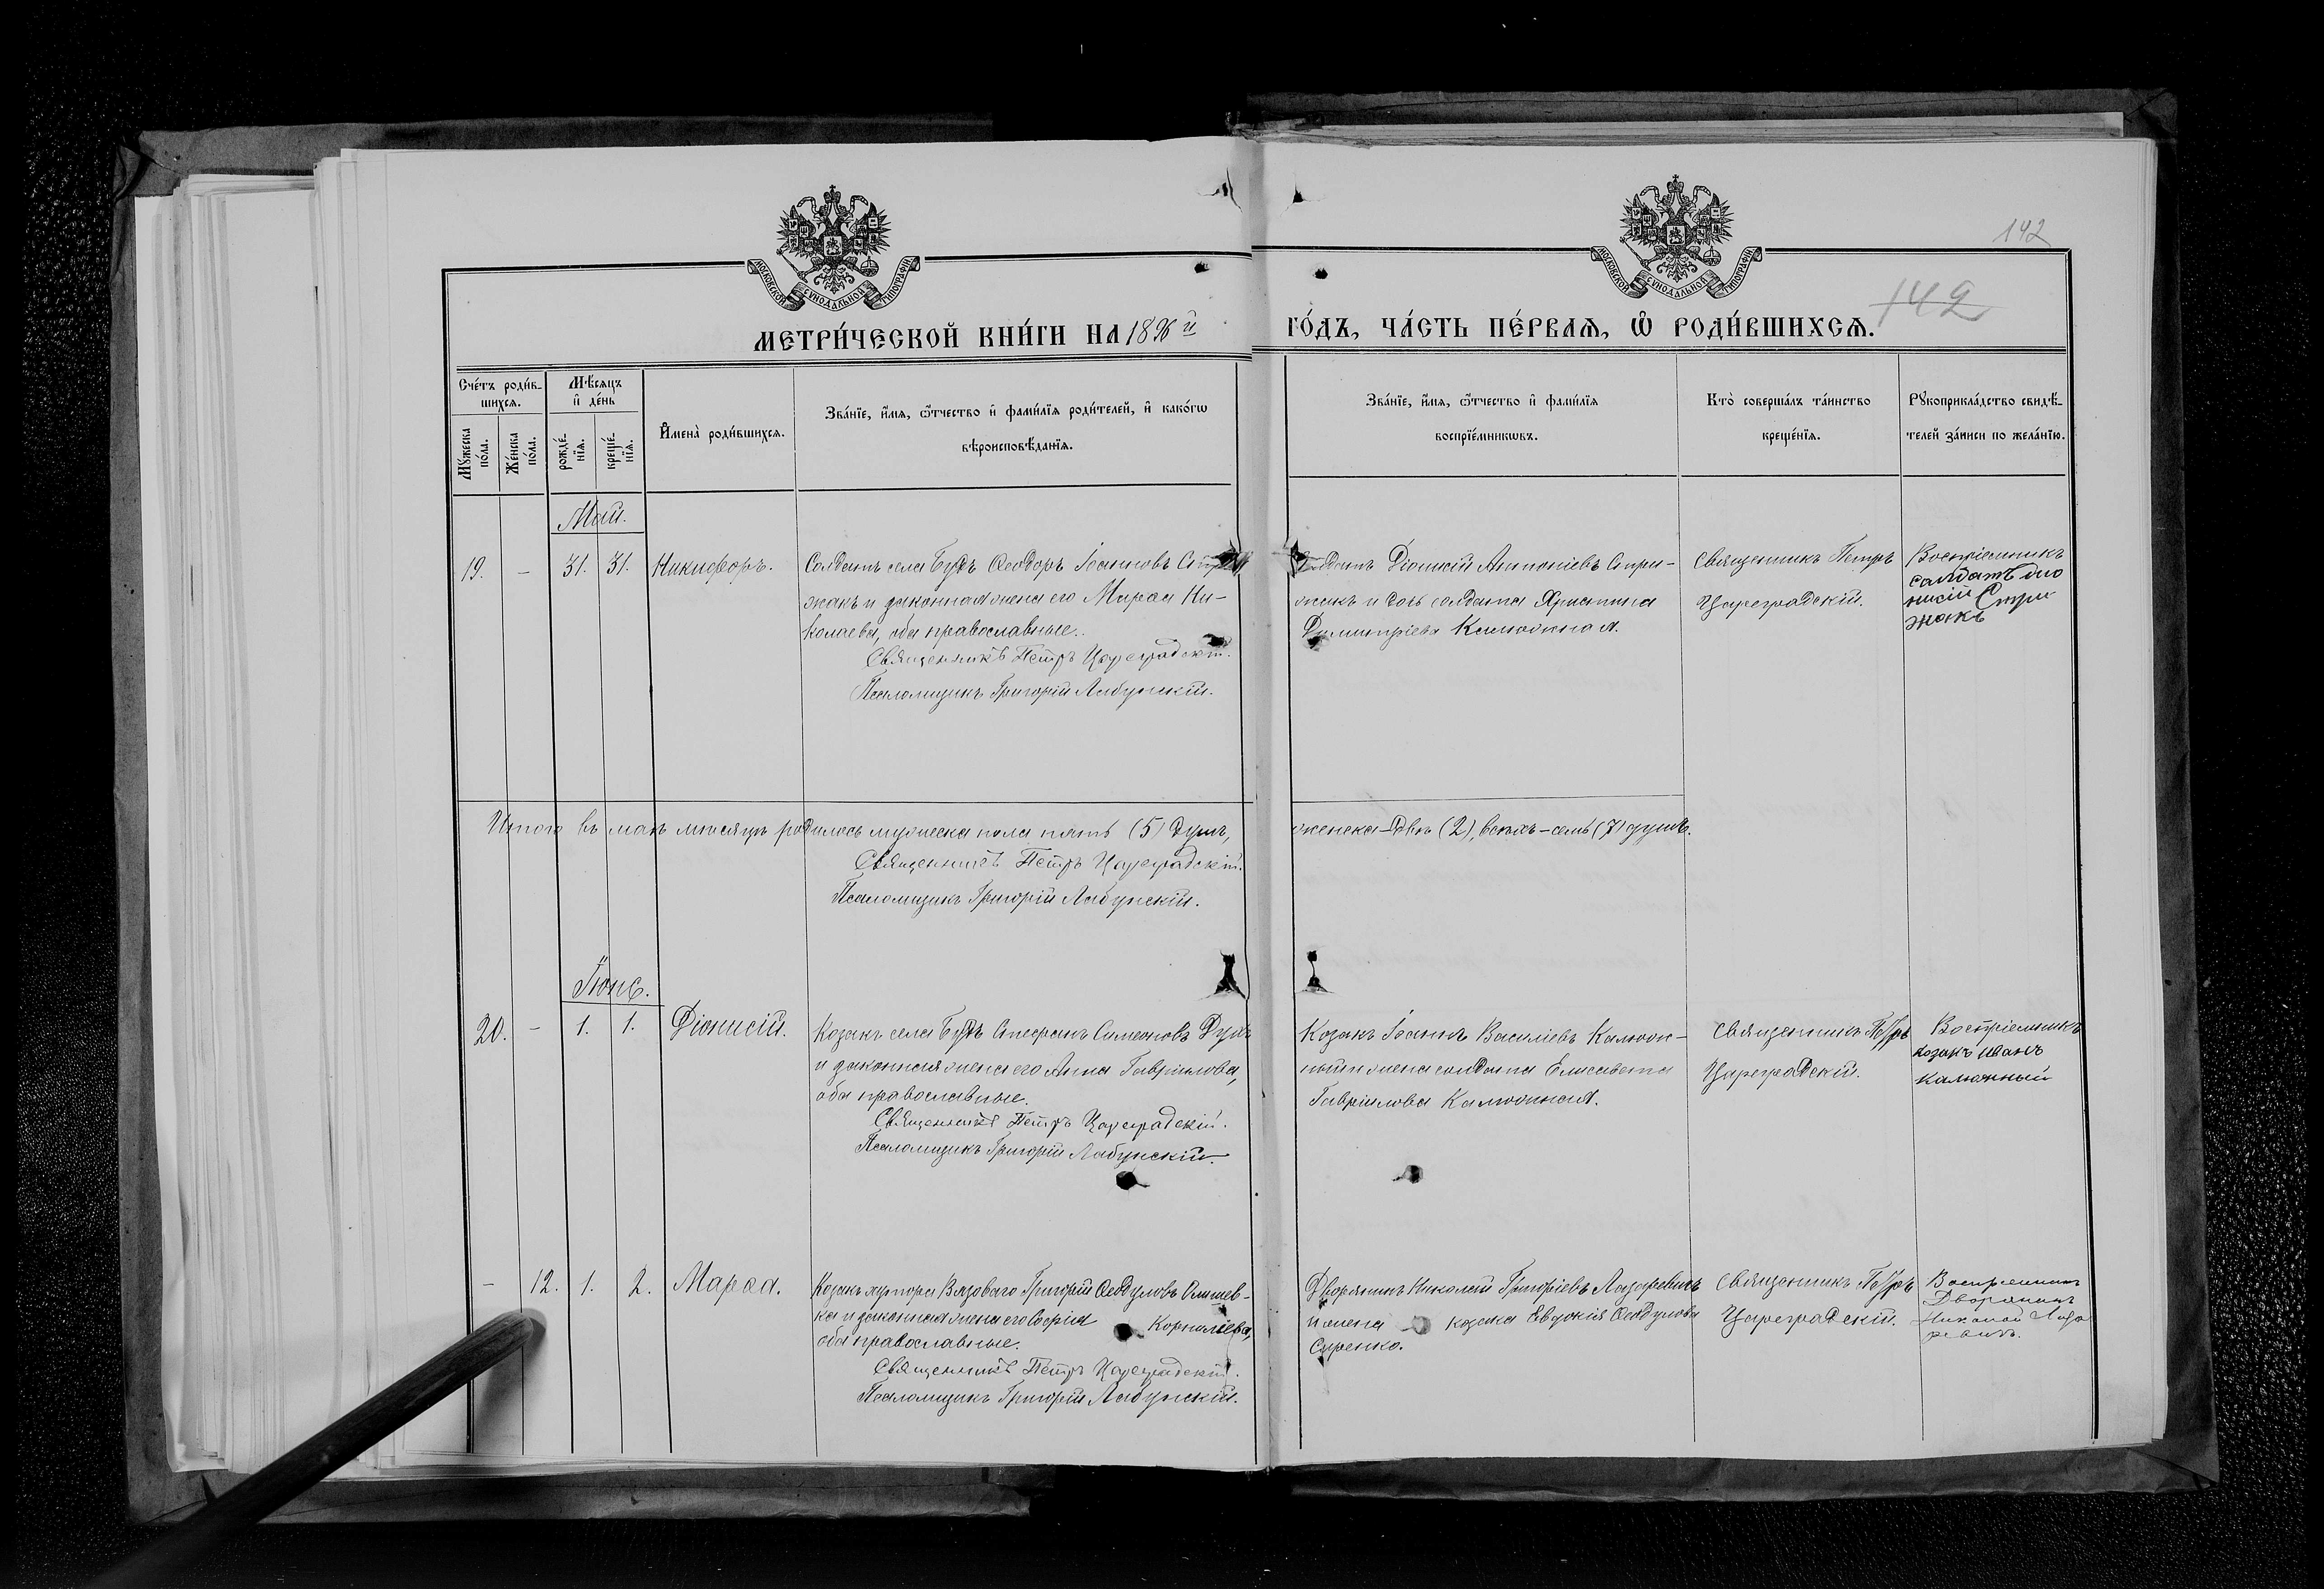 МОСКОВСКОЙ СѴНОДАЛЬНОЙ ТИПОГРАФІИ
МОСКОВСКОЙ СѴНОДАЛЬНОЙ ТИПОГРАФІИ
142
142
МЕТРИ́ЧЕСКОЙ КНИ́ГИ НА 1896 й
ГО́ДЪ, ЧА́СТЬ ПЕ́РВАЯ, Ѡ҆ РОДИ́ВШИХСЯ.
Сче́тъ роди́в-
шихся.
Му́жеска по́ла.
Же́нска по́ла.
Мѣ́сяцъ
и҆ де́нь
рожде́-
нїя.
креще́-
нїя.
И҆мена̀ роди́вшихся.
Зва́нїе, и҆́мя, ѻ҆́тчество и҆ фами́лїя роди́телей, и҆ како́гѡ
вѣроисповѣ́данїя.
Зва́нїе, и҆́мя, ѻ҆́тчество и҆ фами́лїя
воспрїе́мникѡвъ.
Кто̀ соверша́лъ та́инство
креще́нїя.
Рꙋкоприкла́дство свидѣ́-
телей за́писи по жела́нїю.
Май.
19. - 31. 31. Никифоръ.
Солдатъ села Будъ Ѳеодоръ Іоанновъ
жакъ и законная жена его Марѳа Ни-
колаева, оба православные.
Священникъ Петръ Цареградскій.
Псаломщикъ Григорій Лабунскій.
Солдатъ Діонисій Антоніевъ Стри-
жакъ и дочь солдата Христина
Димитріева Калюжная.
Священникъ Петръ
Цареградскій.
Воспріемникъ
салдатъ дио
нисий Стри
жакъ
Итого въ маѣ мѣсяцѣ родилось мужеска пола пять (5) душъ,
женска - двѣ (2), всѣхъ - семь (7) душъ.
Священникъ Петръ Цареградскій.
Псаломщикъ Григорій Лабунскій.
Іюнь.
20. - 1. 1. Діонисій.
Козакъ села Будъ Стефанъ Симеоновъ
и законная жена его Анна Гавріилова,
оба православные.
Священникъ Петръ Цареградскій.
Псаломщикъ Григорій Лабунскій.
Козакъ Іоаннъ Василіевъ Калюж-
ный и жена солдата Елисавета
Гавріилова Калюжная.
Священникъ Петръ
Цареградскій.
Воспріемникъ
козакъ иванъ
калюжный
- 12. 1. 2. Марѳа.
Козакъ хутора Вязоваго Григорій Ѳеодуловъ Олишев-
ка и законная жена его Софія Корниліева,
оба православные.
Священникъ Петръ Цареградскій.
Псаломщикъ Григорій Лабунскій.
Дворянинъ Николай Григоріевъ Лазаревичъ
и жена козака Евдокія Ѳеодулова
Сиренко.
Священникъ Петръ
Цареградскій.
Воспріемникъ
Дворянинъ
Николай Лаза
ревичъ.